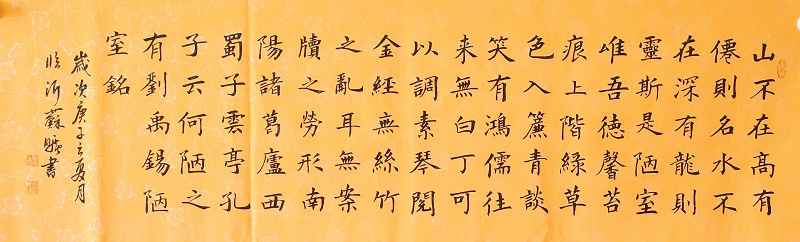 山不在高有
僊則名水不
在深有龍則
靈斯是陋室
唯吾徳馨苔
痕上階緑草
色入簾青談
笑有鴻儒往
来無白丁可
以調素琴閲
金經無絲竹
之亂耳無案
牘之勞形南
陽諸葛廬西
蜀子雲亭孔
子云何陋之
有劉禹錫陋
室銘
歲次庚子之夏月
臨沂蘇書